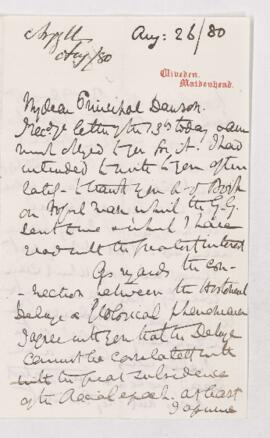 Argyll
Aug/80
Aug: 26/80
Cliveden,
Maidenhead.
My dear Principal Dawson.
I recd yr letter of the 13th today & am
much obliged to you for it. I had
intended to write to you often
lately to thank you for yr Book
on Fossil Man which the G.G.
lent me & which I have
read with the greatest interest
As regards the con-
-nection between the Historical
Deluge & Geological phenomena
I agree with you that the Deluge
cannot be correlated with
with the great subsidence
of the Glacial epoch. at least